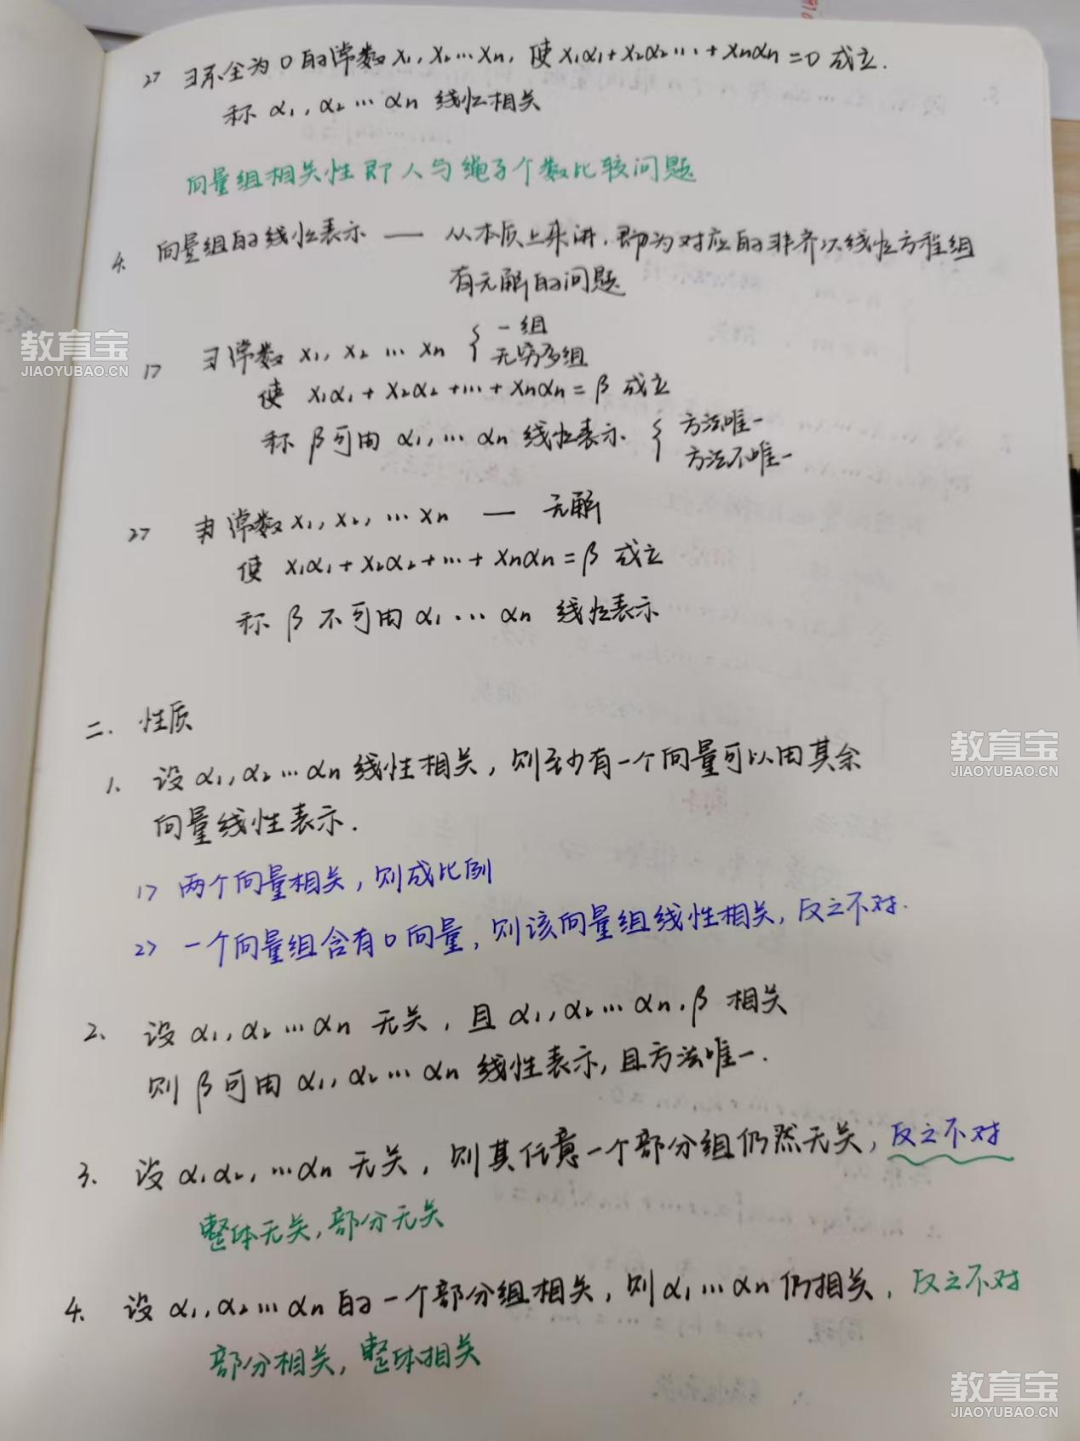 2> ∃不全为0的常数x₁,x₂…xₙ,使x₁α₁+x₂α₂…+xₙαₙ=0成立.
称α₁,α₂…αₙ线性相关
向量组相关性即人与绳子个数比较问题
4. 向量组的线性表示 — 从本质上来讲,即为对应的非齐次线性方程组
有无解的问题
1> ∃常数x₁,x₂…xₙ { 一组
无穷多组
使x₁α₁+x₂α₂+…+xₙαₙ=β成立
称β可由α₁,…αₙ线性表示 { 方法唯一
方法不唯一
2> ∄常数x₁,x₂,…xₙ — 无解
使x₁α₁+x₂α₂+…+xₙαₙ=β成立
称β不可由α₁…αₙ线性表示
二.性质
1. 设α₁,α₂…αₙ线性相关,则至少有一个向量可以由其余
向量线性表示.
1> 两个向量相关,则成比例
2> 一个向量组含有0向量,则该向量组线性相关,反之不对.
2. 设α₁,α₂…αₙ无关,且α₁,α₂…αₙ,β相关
则β可由α₁,α₂…αₙ线性表示,且方法唯一.
3. 设α₁α₂,…αₙ无关,则其任意一个部分组仍然无关,反之不对
整体无关,部分无关
4. 设α₁,α₂…αₙ的一个部分组相关,则α₁…αₙ仍相关,反之不对
部分相关,整体相关
教育宝
JIAOYUBAO.CN
教育宝
JIAOYUBAO.CN
教育宝
JIAOYUBAO.CN